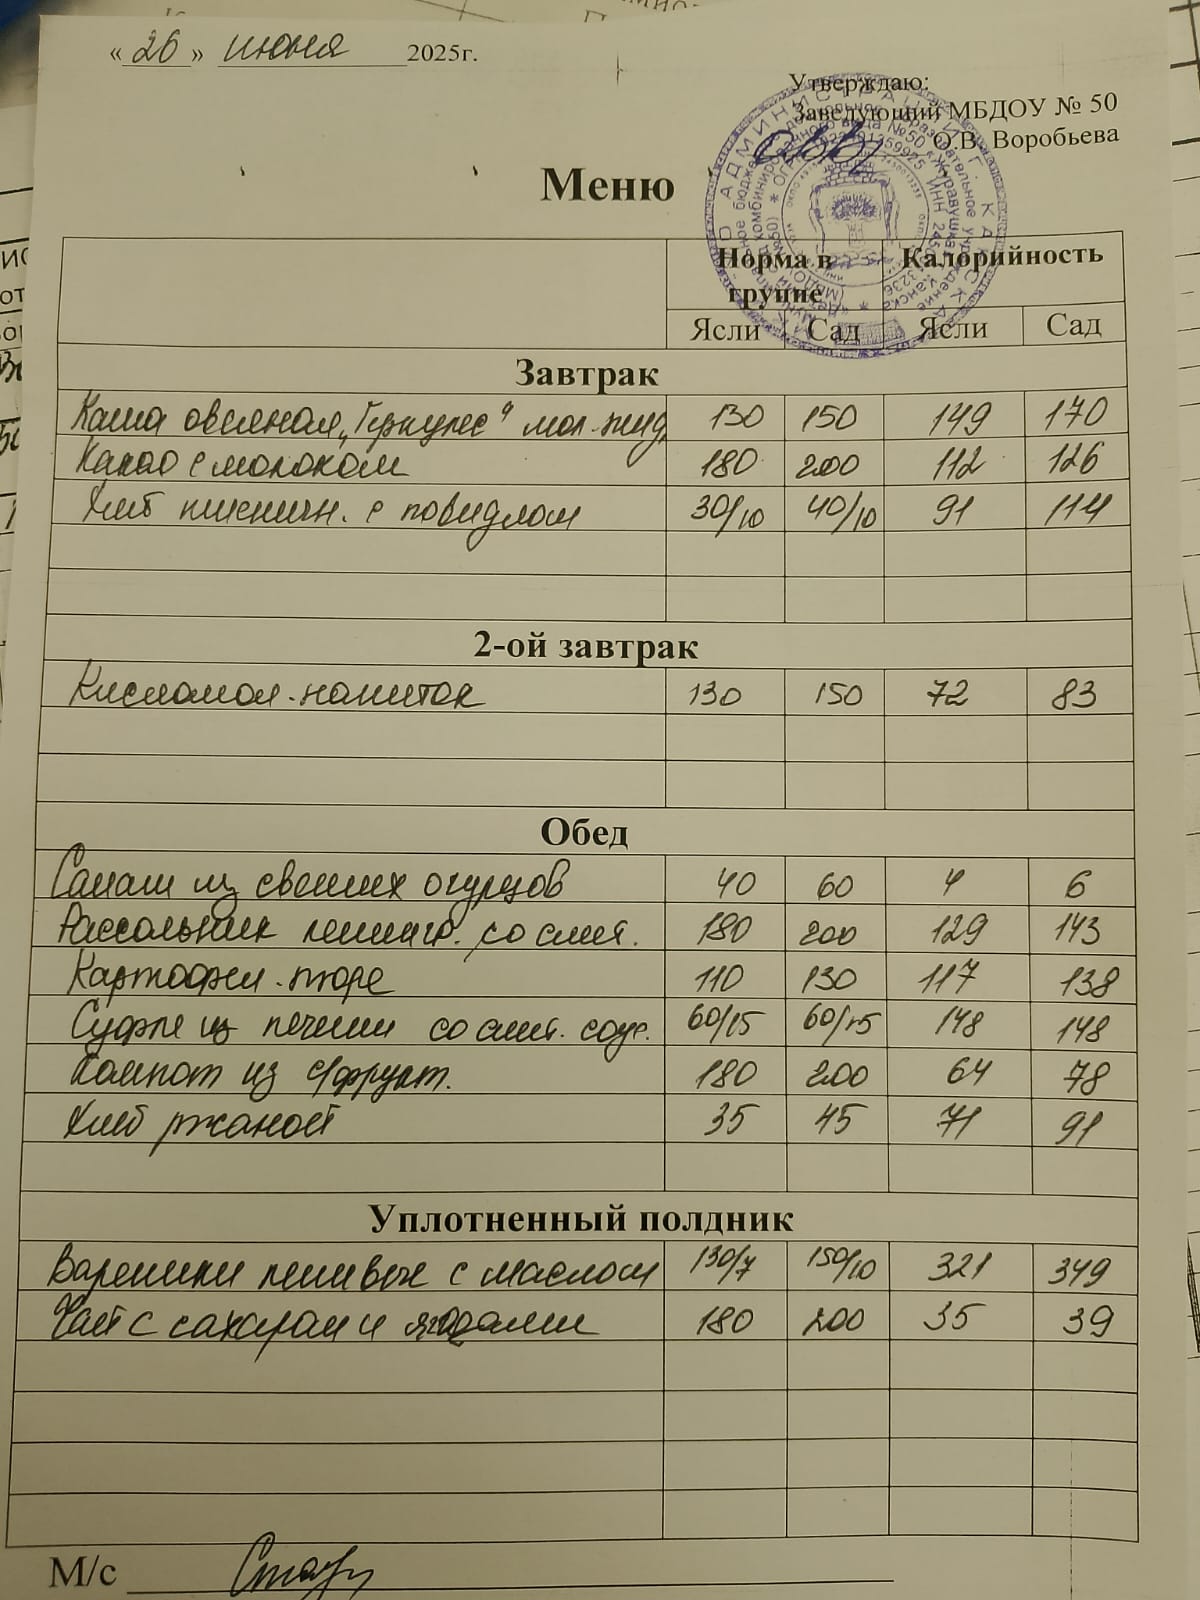 «26» июня 2025г.
Утверждаю:
Заведующий МБДОУ № 50
О.В. Воробьева
Меню
Норма в группе Калорийность
Ясли Сад Ясли Сад
Завтрак
Каша овсяная „Геркулес" мол. жид. 130 150 149 170
Какао с молоком 180 200 112 126
Хлеб пшеничн. с повидлом 30/10 40/10 91 114
2-ой завтрак
Кисломол. напиток 130 150 72 83
Обед
Салат из свежих огурцов 40 60 4 6
Рассольник ленингр. со смет. 180 200 129 143
Картофел. пюре 110 130 117 138
Суфле из печени со смет. соус. 60/15 60/15 148 148
Компот из с/фрукт. 180 200 64 78
Хлеб ржаной 35 45 71 91
Уплотненный полдник
Вареники ленивые с маслом 130/7 150/10 321 349
Чай с сахаром и ягодами 180 200 35 39
М/с